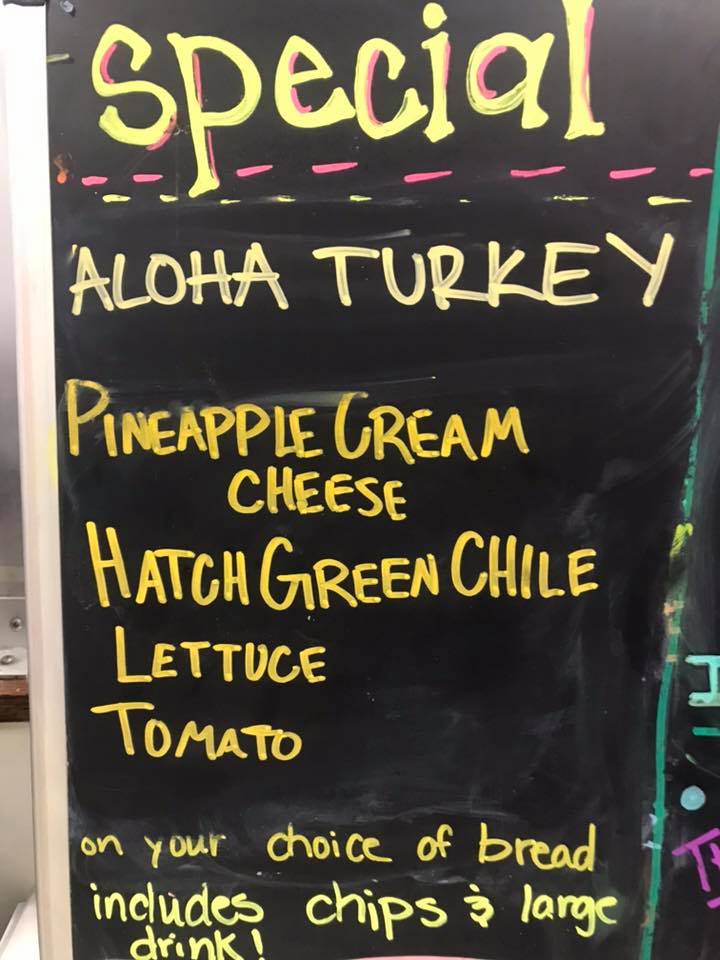 special
ALOHA TURKEY
PINEAPPLE CREAM
CHEESE
HATCH GREEN CHILE
LETTUCE
TOMATO
on your choice of bread
includes chips & large
drink!